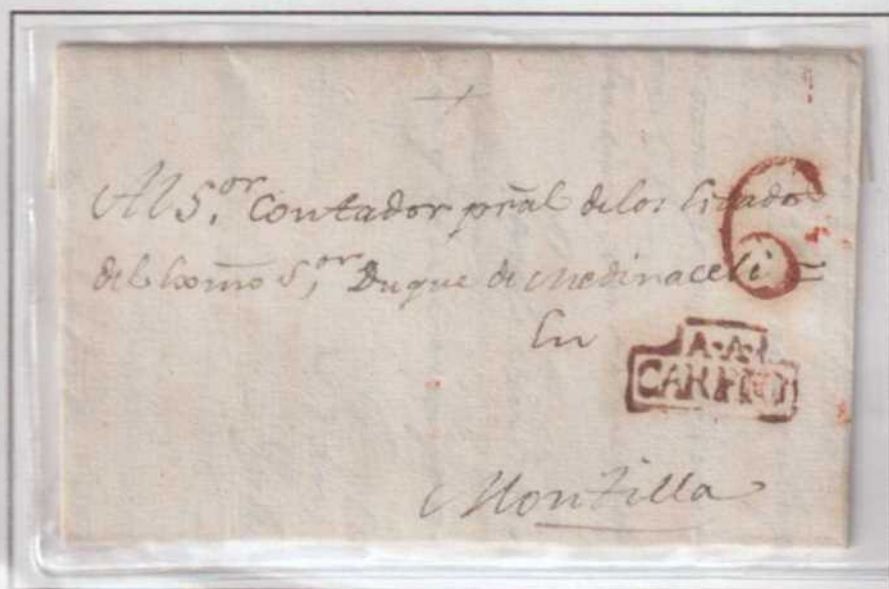 Al S.or Contador pral de los Estados
del Exmo S.or Duque de Medinaceli =
En
Montilla
6
A.A.